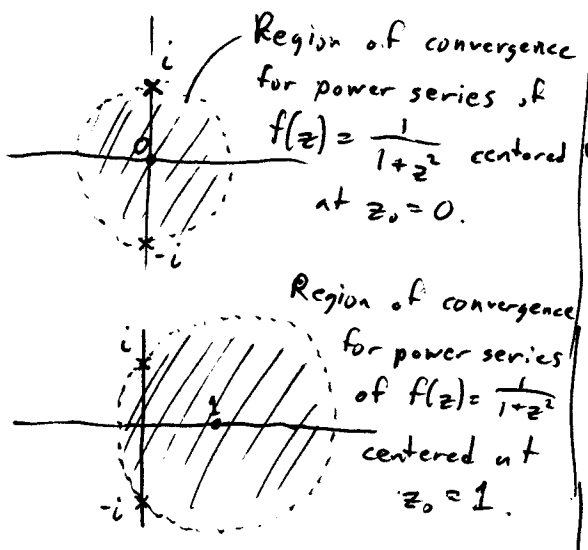 i
Region of convergence
for power series of
f(z) = 1/(1+z²) centered
0
at z₀ = 0.
-i
Region of convergence
i
for power series
of f(z) = 1/(1+z²)
1
centered at
-i
z₀ = 1.